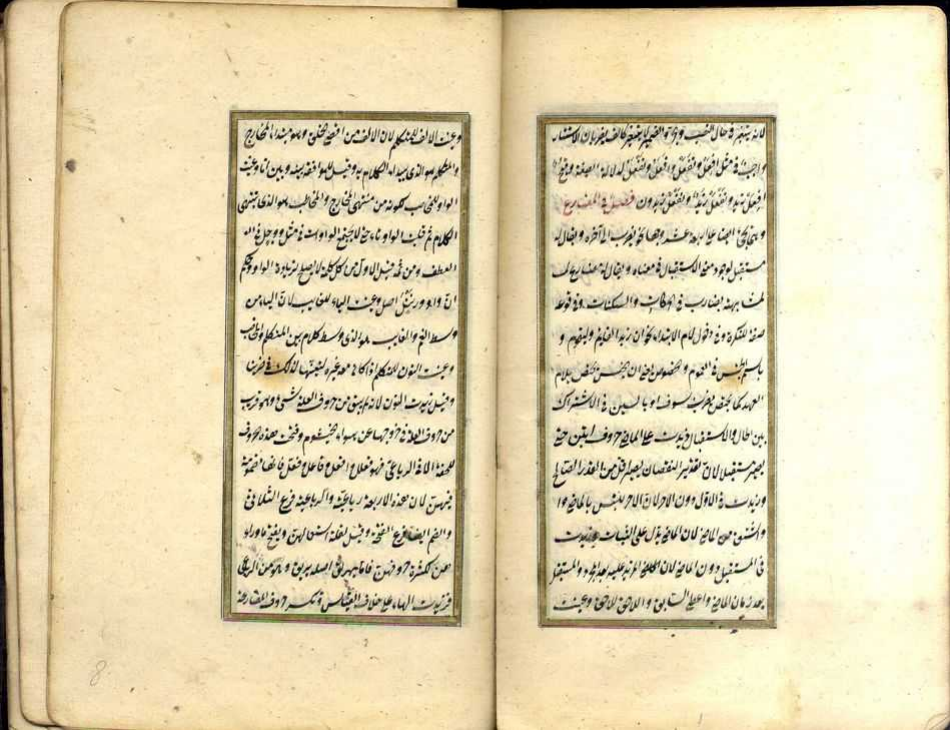 لانه يستتر في حال النصب والجر في الغير لانهما كالف يضربان الاستتار
واجب في مثل افعل وتفعل وافعل ونفعل لدلالة الصيغة وقبح
افعل زيد وتفعل زيد ونفعل زيدون فصل في المضارع
و يجئ ايضا على اربعة عشر وجها نحو يضرب الى آخره ويقال له
مستقبل لوجود معنى الاستقبال في معناه ويقال له مضارع لانه
مشابه لضارب في الحركات والسكنات وفي وقوعه
صفة للنكرة وفي دخول لام الابتداء نحو ان زيدا لقايم وليقوم و
باسم الجنس في العموم والخصوص يعني ان الجنس يختص بلام
العهد كما يختص يضرب بسوف او بالسين في الاشتراك
بين الحال والاستقبال زيدت على الماضي حروف اتين حتى
يصير مستقبلا لان بتقدير النقصان يصير اقل من القدر الصالح
وزيدت في الاول دون الآخر لان الآخر يلتبس بالماضي و
اشتق من الماضي لان الماضي يدل على الثبات وزيدت
في المستقبل دون الماضي لان المزيد عليه بعد المجرد والمستقبل
بعد زمان الماضي واعطي السابق واللاحق لاحق وعينت
وعينت الالف للمتكلم لان الالف من اقصى الحلق وهو مبدأ المخارج
والمتكلم هو الذي يبدأ الكلام به وقيل للموافقة بينه وبين انا وعينت
الواو للمخاطب لكونه من منتهى المخارج والمخاطب هو الذي ينتهي
الكلام ثم قلبت الواو تاء حتى لا يجتمع الواوات في مثل ووجل في
العطف ومن ثمه قيل الاول من كل كلمة لا يصلح لزيادة الواو وحكم
ان واو ورنتل اصل وعينت الياء للغايب لان الياء من
وسط الفم والغايب هو الذي وسط كلام بين المتكلم والمخاطب
وعينت النون للمتكلم اذا كان معه غيره لتعينها لذلك في ضربنا
وقيل زيدت النون لانه لم يبق من حروف العلة شئ وهو قريب
من حروف العلة في خروجها عن هواء الخيشوم وفتحت هذه الحروف
للخفة الا في الرباعي فهو فعلل وافعل وفاعل وفعل
فيهن لان هذه الاربعة رباعية والرباعية فرع الثلاثي
والضم ايضا فرع الفتح وقيل لقلة استعمالهن ويفتح ما وراء
هن لكثرة حروفهن فاما يهريق اصله يريق وهو من الرباعي
فزيدت الهاء على خلاف القياس وتكسر حروف المضارعة
8